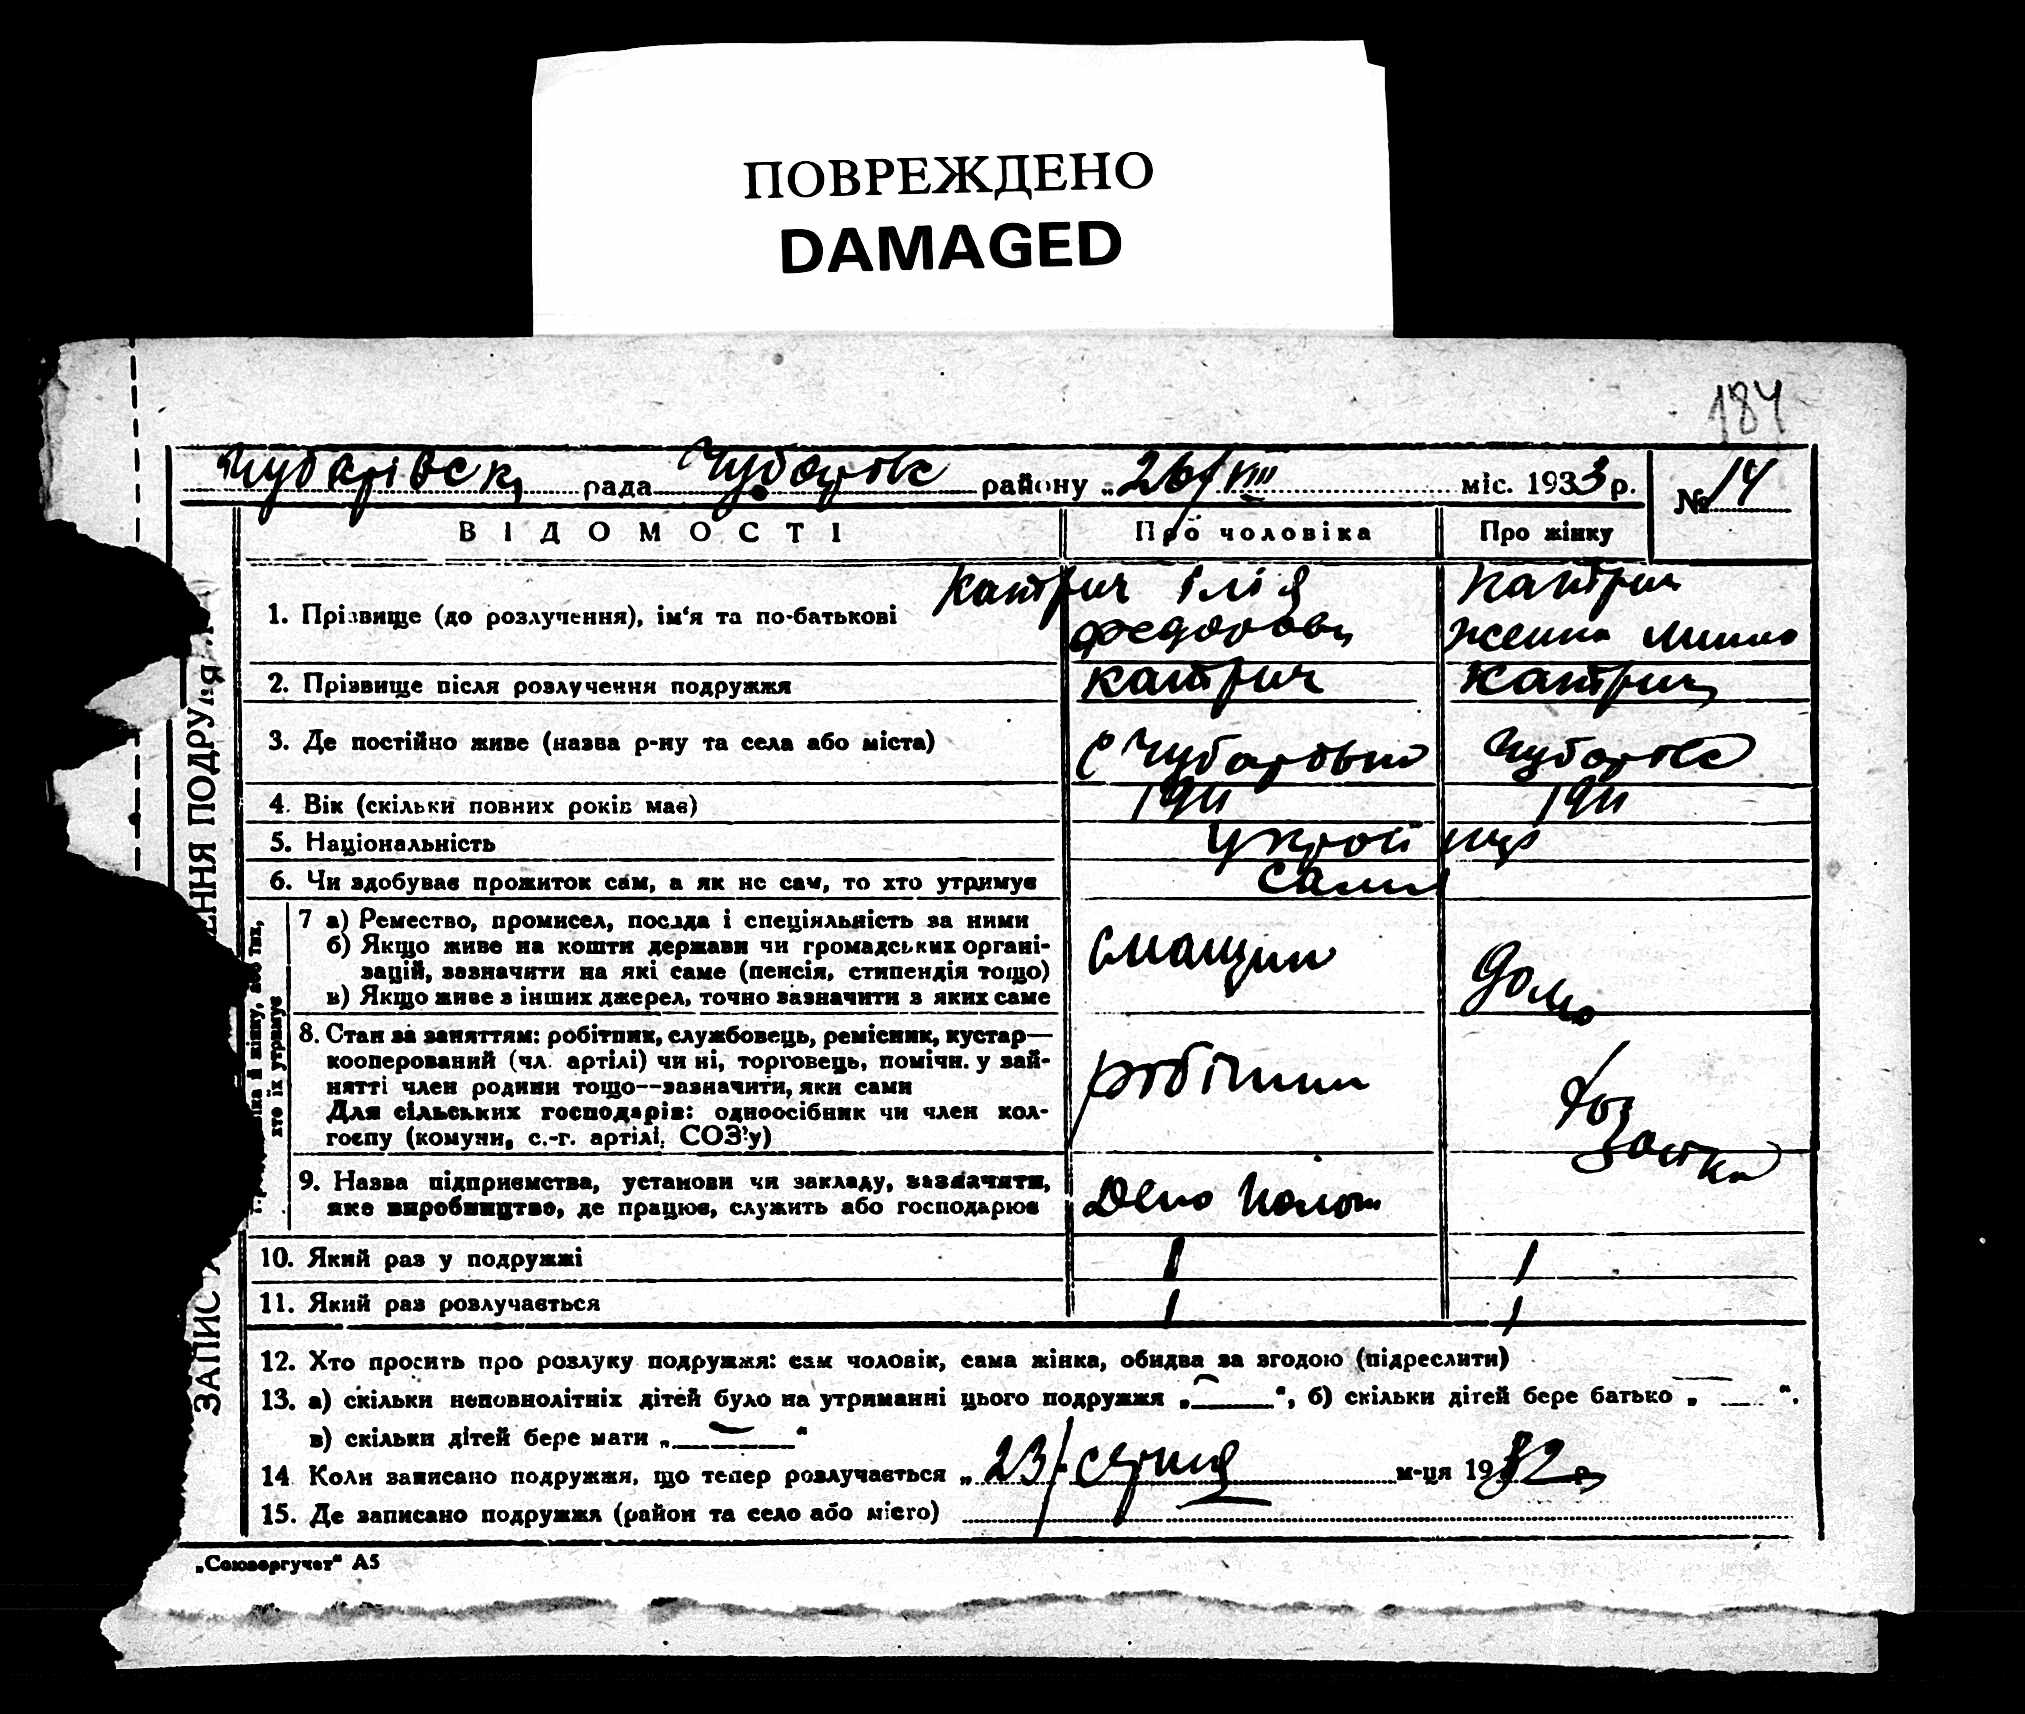 ПОВРЕЖДЕНО
DAMAGED
184
Чубарівськ рада Чубарівс району „26/VIII міс. 1933 р. № 14
ВІДОМОСТІ Про чоловіка Про жінку
Кантрич Ілія Кантрич
1. Прізвище (до розлучення), ім‘я та по-батькові
Федорови
2. Прізвище після розлучення подружжя Кантрич Кантрич
3. Де постійно живе (назва р-ну та села або міста) с Чубарівка
4. Вік (скільки повних років має) 1911 1911
5. Національність Україн
6. Чи здобуває прожиток сам, а як не сам, то хто утримує сами
7 а) Ремество, промисел, посада і спеціяльність за ними
б) Якщо живе на кошти держави чи громадських органі-
зацій, зазначити на які саме (пенсія, стипендія тощо) смащик домо
в) Якщо живе з інших джерел, точно зазначити з яких саме
8. Стан за заняттям: робітник, службовець, ремісник, кустар—
кооперований (чл. артілі) чи ні, торговець, помічн. у зай-
нятті член родини тощо—зазначити, яки сами робітник
Для сільських господарів: одноосібник чи член кол-
госпу (комуни, с.-г. артілі, СОЗ‘у) хоз
зайка
9. Назва підприємства, установи чи закладу, зазначити,
яке виробництво, де працює, служить або господарює Депо
10. Який раз у подружжі 1 1
11. Який раз розлучається 1 1
12. Хто просить про розлуку подружжя: сам чоловік, сама жінка, обидва за згодою (підреслити)
13. а) скільки неповнолітніх дітей було на утриманні цього подружжя „—“, б) скільки дітей бере батько „—“.
в) скільки дітей бере мати „—“
14. Коли записано подружжя, що тепер розлучається „23/ серпня м-ця 1932 р.
15. Де записано подружжя (район та село або місто)
„Союзоргучет“ А5
ЗАПИС
ЕННЯ ПОДРУ
ння